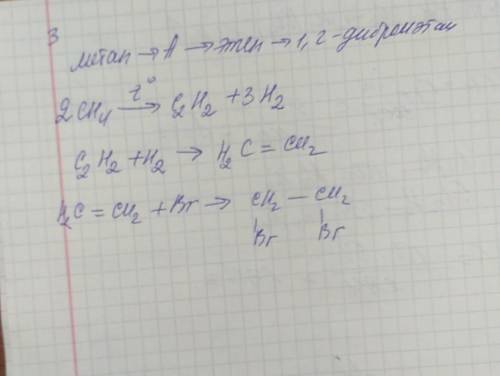 3
метан → А → этен → 1,2-дибромэтан
2CH₄ —t°→ C₂H₂ + 3H₂
C₂H₂ + H₂ → H₂C = CH₂
H₂C = CH₂ + Br → CH₂ — CH₂
Br Br